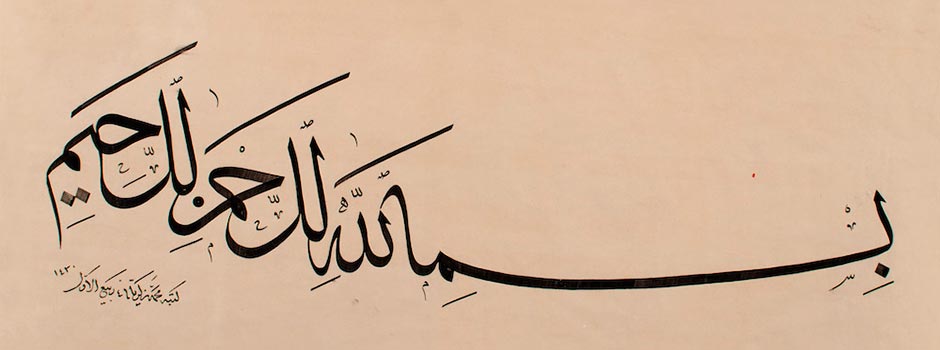 بِسْمِ اللّٰهِ الرَّحْمٰنِ الرَّحِيمِ
كتبه محمد زكريا ربيع الأول ١٤٣٠